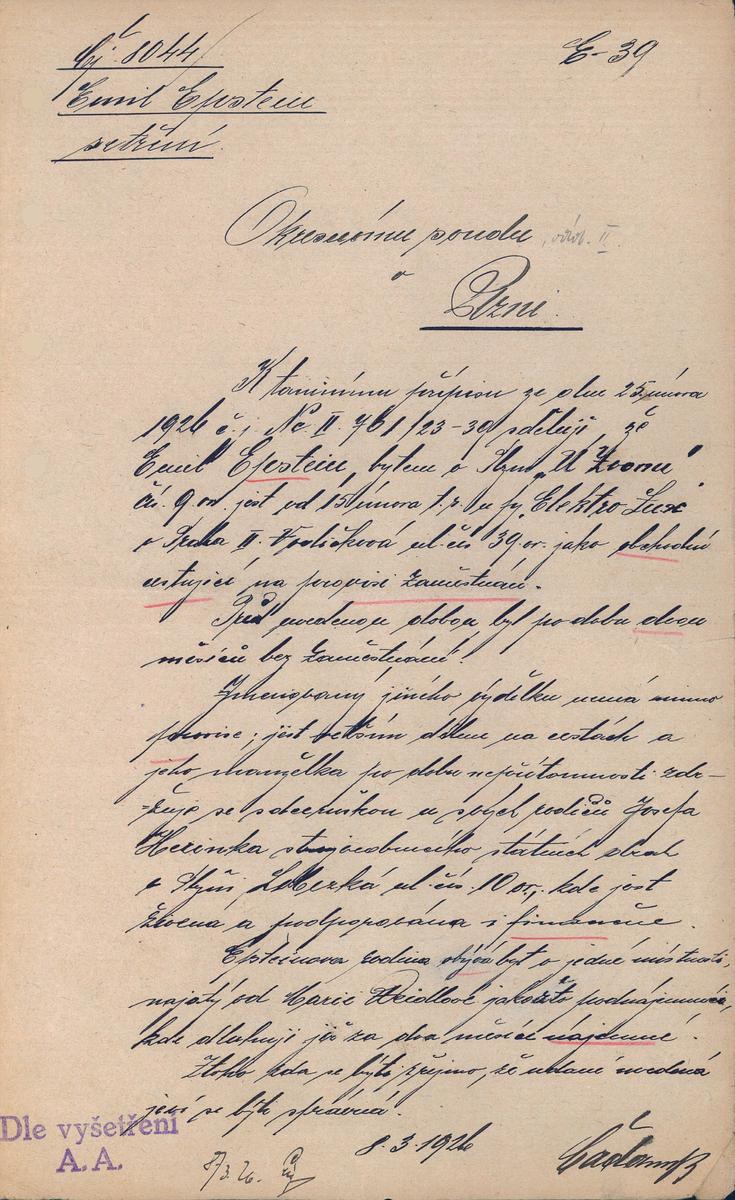 Čj. 8044/
E-39
Emil Epstein
setření.
Okresnímu soudu, odd. II.
v
Plzni.
K tamnímu přípisu ze dne 25. února
1926 č.j. Nc II. 761/23-39 sděluji, že
Emil Epstein, bytem v Plzni „U Zvonu"
čís. 9. or. jest od 15. února t.r. u fy. „Elektro Lux"
v Praha II. Vodičková ul. čís. 39. or. jako obchodní
cestující na provisi zaměstnán.
Před uvedenou dobou byl po dobu dvou
měsíců bez zaměstnání.
Jmenovaný jiného výdělku nemá mimo
provise; jest větším dílem na cestách a
jeho manželka po dobu nepřítomnosti zdr-
žuje se s dceruškou u svých rodičů Josefa
státních drah
ul. čís. 10 or., kde jest
živena a podporována i finančně.
Epsteinova rodina obývá byt o jedné místnosti,
najatý od Marie jakožto podnájemnice,
kde dluhují již za dva měsíce nájemné.
Z toho zdá se býti zřejmo, že udání uvedená
jeví se býti správná.
Dle vyšetření
A.A.
8. 3. 1926
8/3. 26.